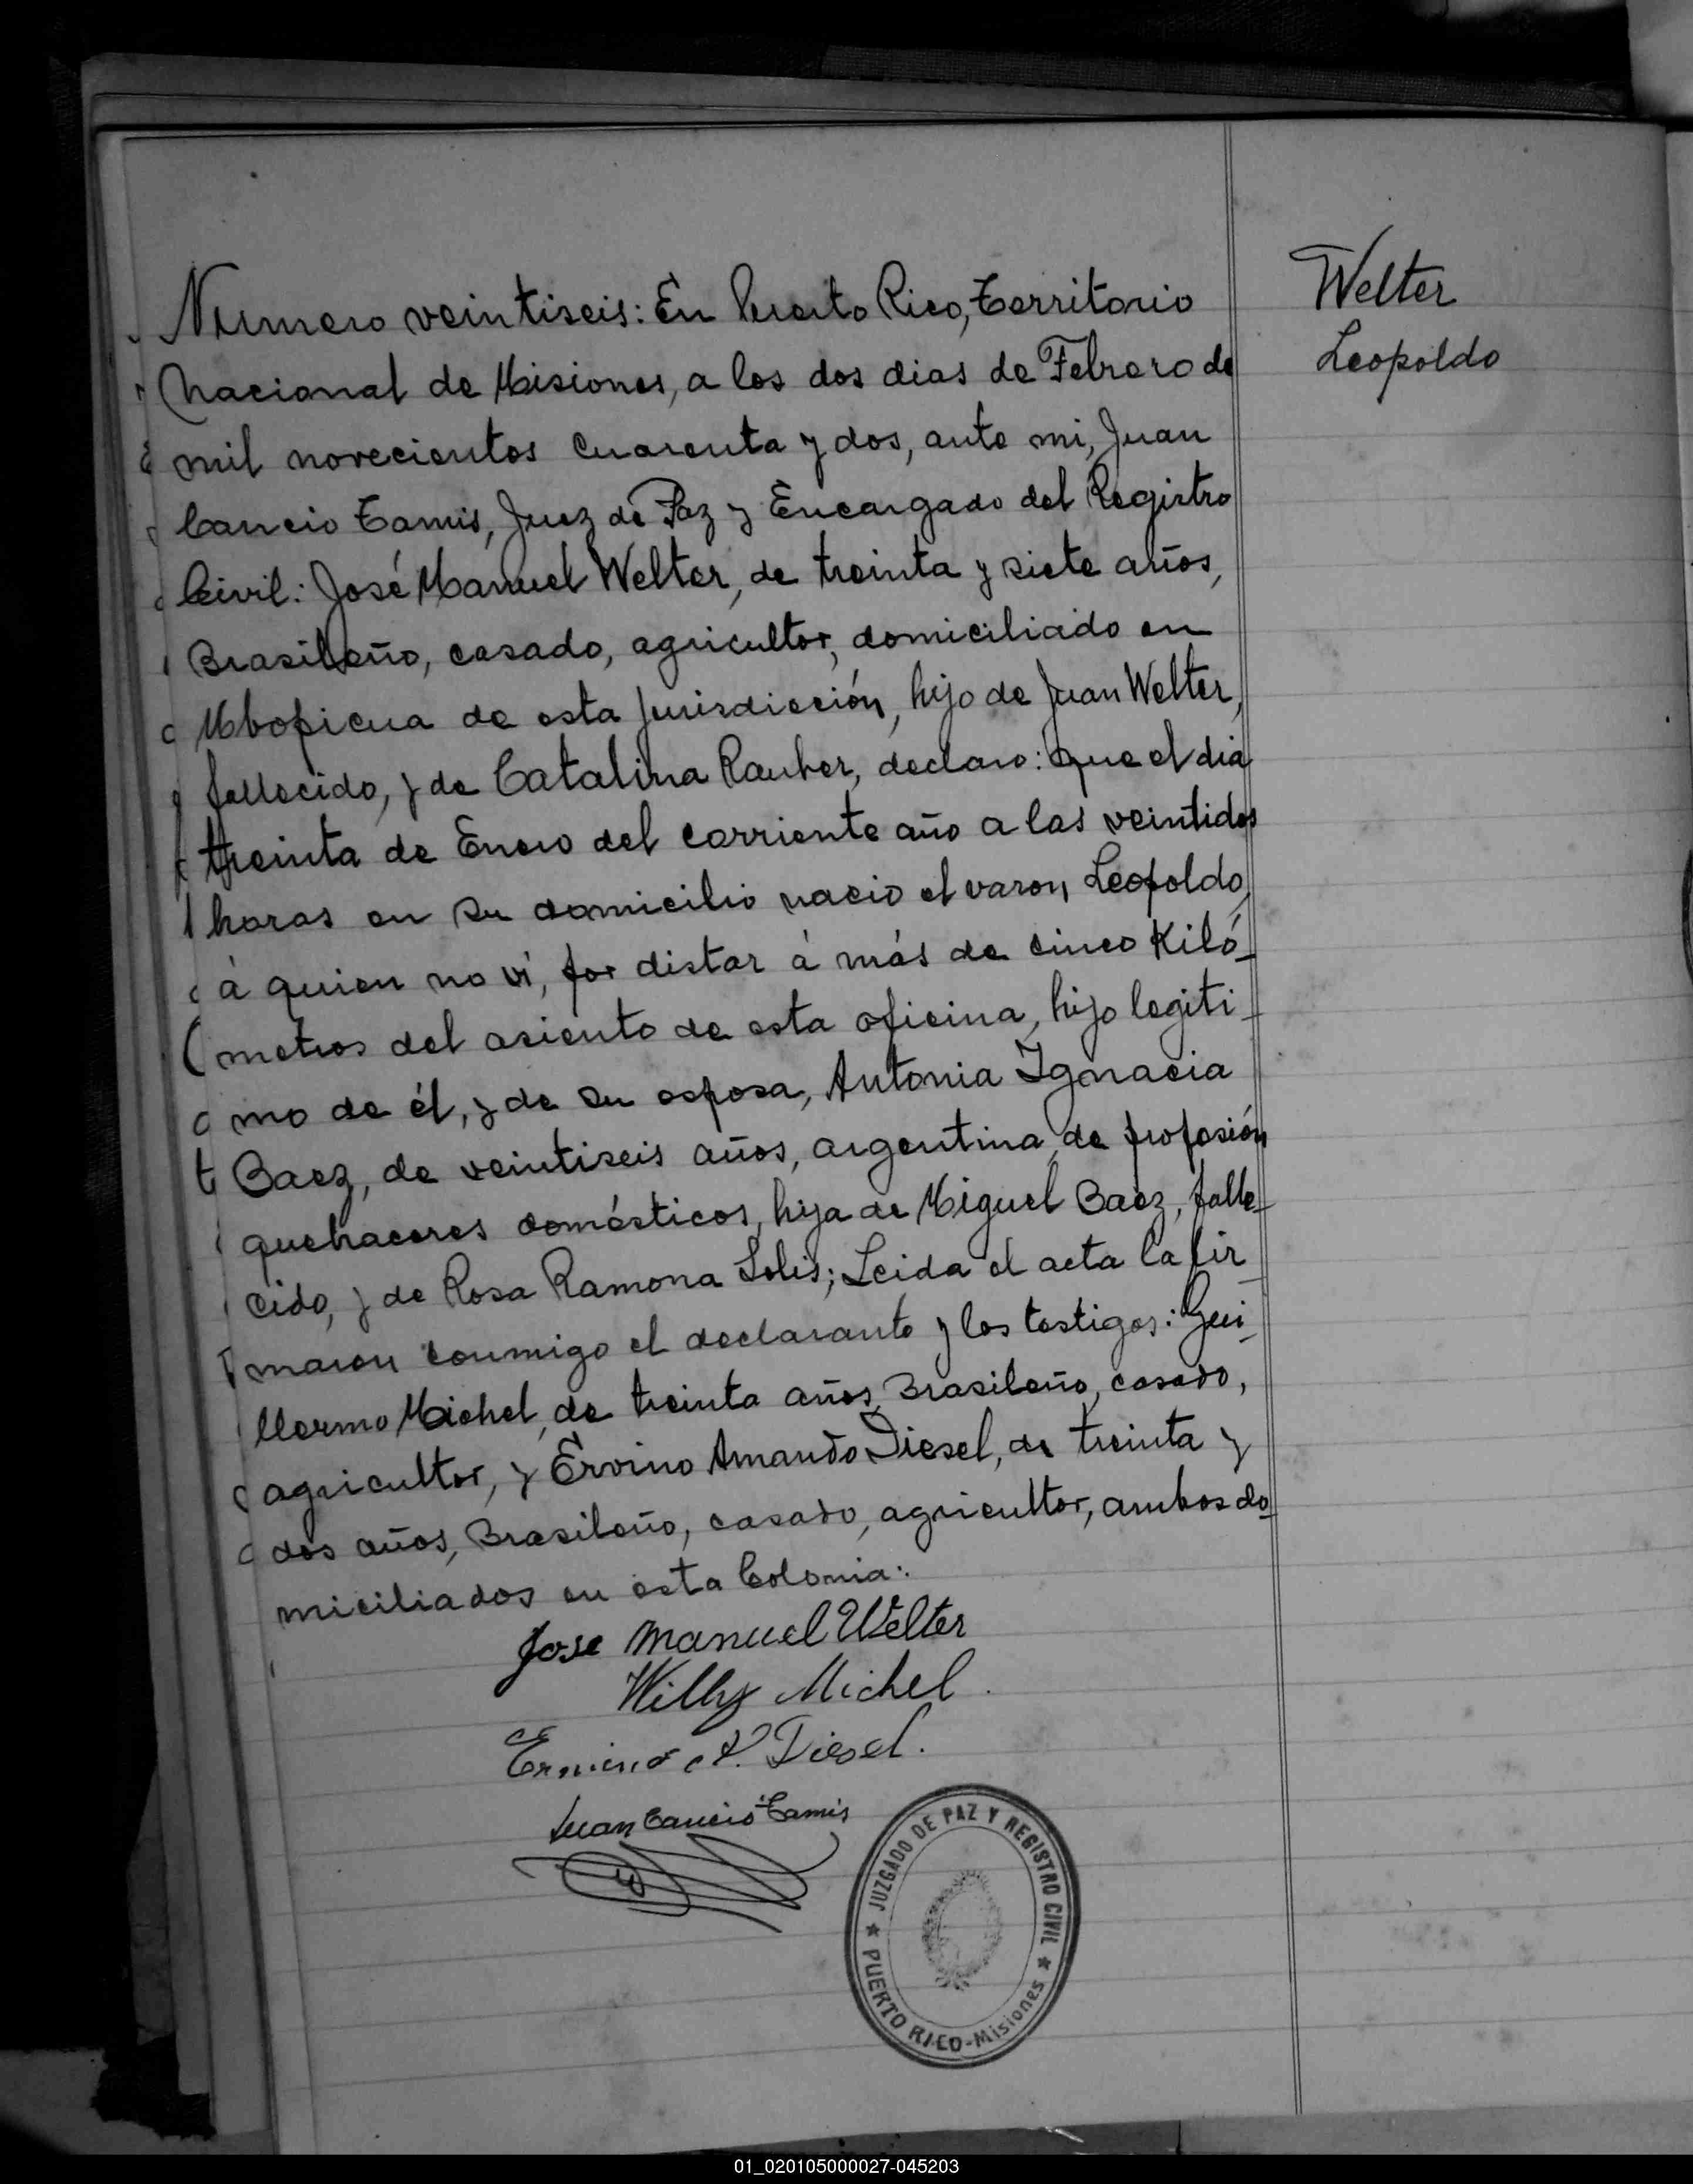 Welter
Leopoldo
Numero veintiseis: En Puerto Rico, Territorio
Nacional de Misiones, a los dos dias de Febrero de
mil novecientos cuarenta y dos, ante mi, Juan
Cancio Tamis, Juez de Paz y Encargado del Registro
Civil: José Manuel Welter, de treinta y siete años,
Brasileño, casado, agricultor, domiciliado en
Mbopicua de esta jurisdicción, hijo de Juan Welter,
fallecido, y de Catalina Rauber, declaro: Que el dia
treinta de Enero del corriente año a las veintidos
horas en su domicilio nacio el varon Leopoldo,
á quien no ví, por distar á más de cinco Kiló-
metros del asiento de esta oficina, hijo legiti-
mo de él, y de su esposa, Antonia Ignacia
Baez, de veintiseis años, argentina, de profesión
quehaceres domésticos, hija de Miguel Baez, falle-
cido, y de Rosa Ramona Solis; Leida el acta la fir-
maron conmigo el declarante y los testigos: Gui-
llermo Michel, de treinta años, Brasileño, casado,
agricultor, y Ervino Amando Diesel, de treinta y
dos años, Brasileño, casado, agricultor, ambos do-
miciliados en esta Colonia:.
Jose Manuel Welter
Willy Michel.
Ervino A. Diesel.
Juan Cancio Tamis
JUZGADO DE PAZ Y REGISTRO CIVIL
PUERTO RICO-Misiones
01_020105000027-045203